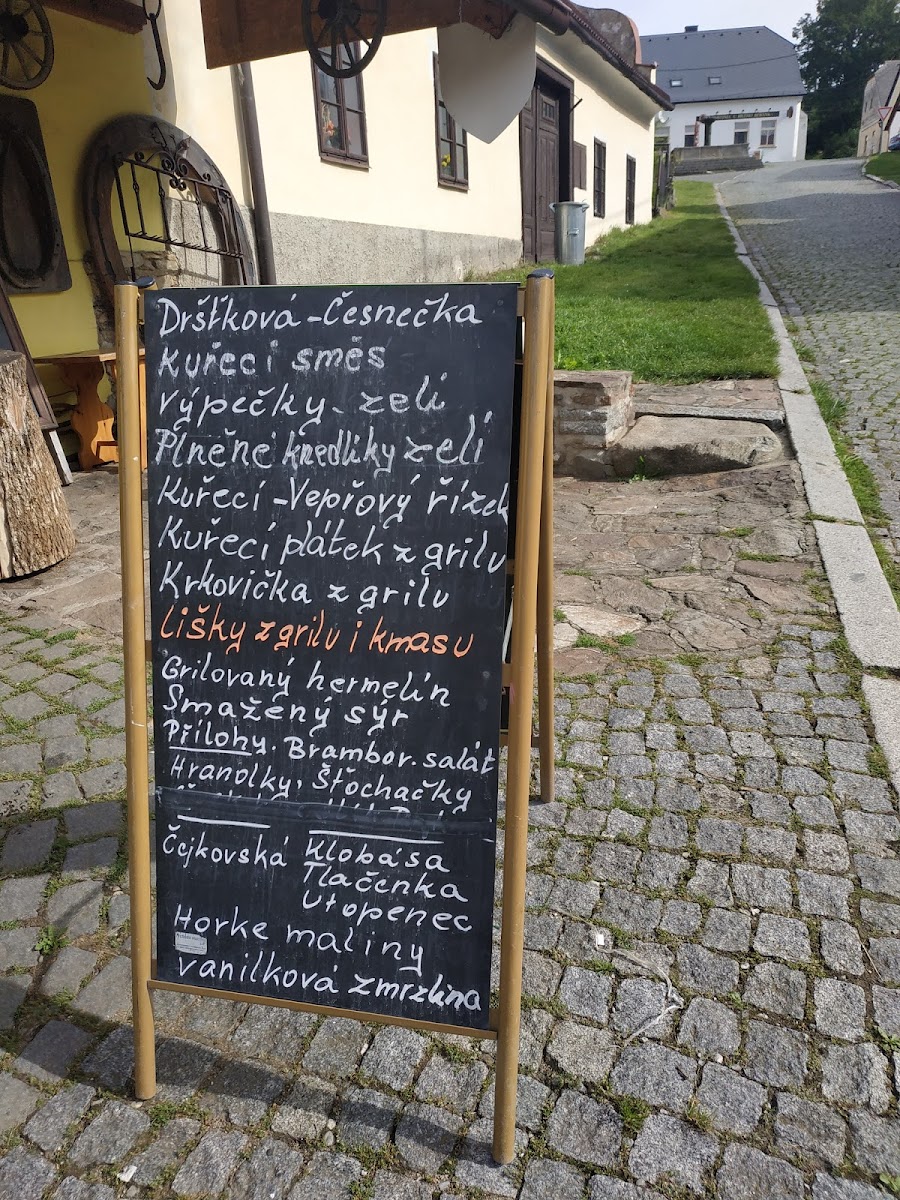 Dršťková - Česnečka
Kuřecí směs
Výpečky - zelí
Plněné knedlíky zelí
Kuřecí - Vepřový řízek
Kuřecí plátek z grilu
Krkovička z grilu
Lišky z grilu i kmasu
Grilovaný hermelín
Smažený sýr
Přílohy. Brambor. salát
Hranolky, Šťochačky
Čejkovská Klobása
Tlačenka
Utopenec
Horke maliny
vanilková zmrzlina